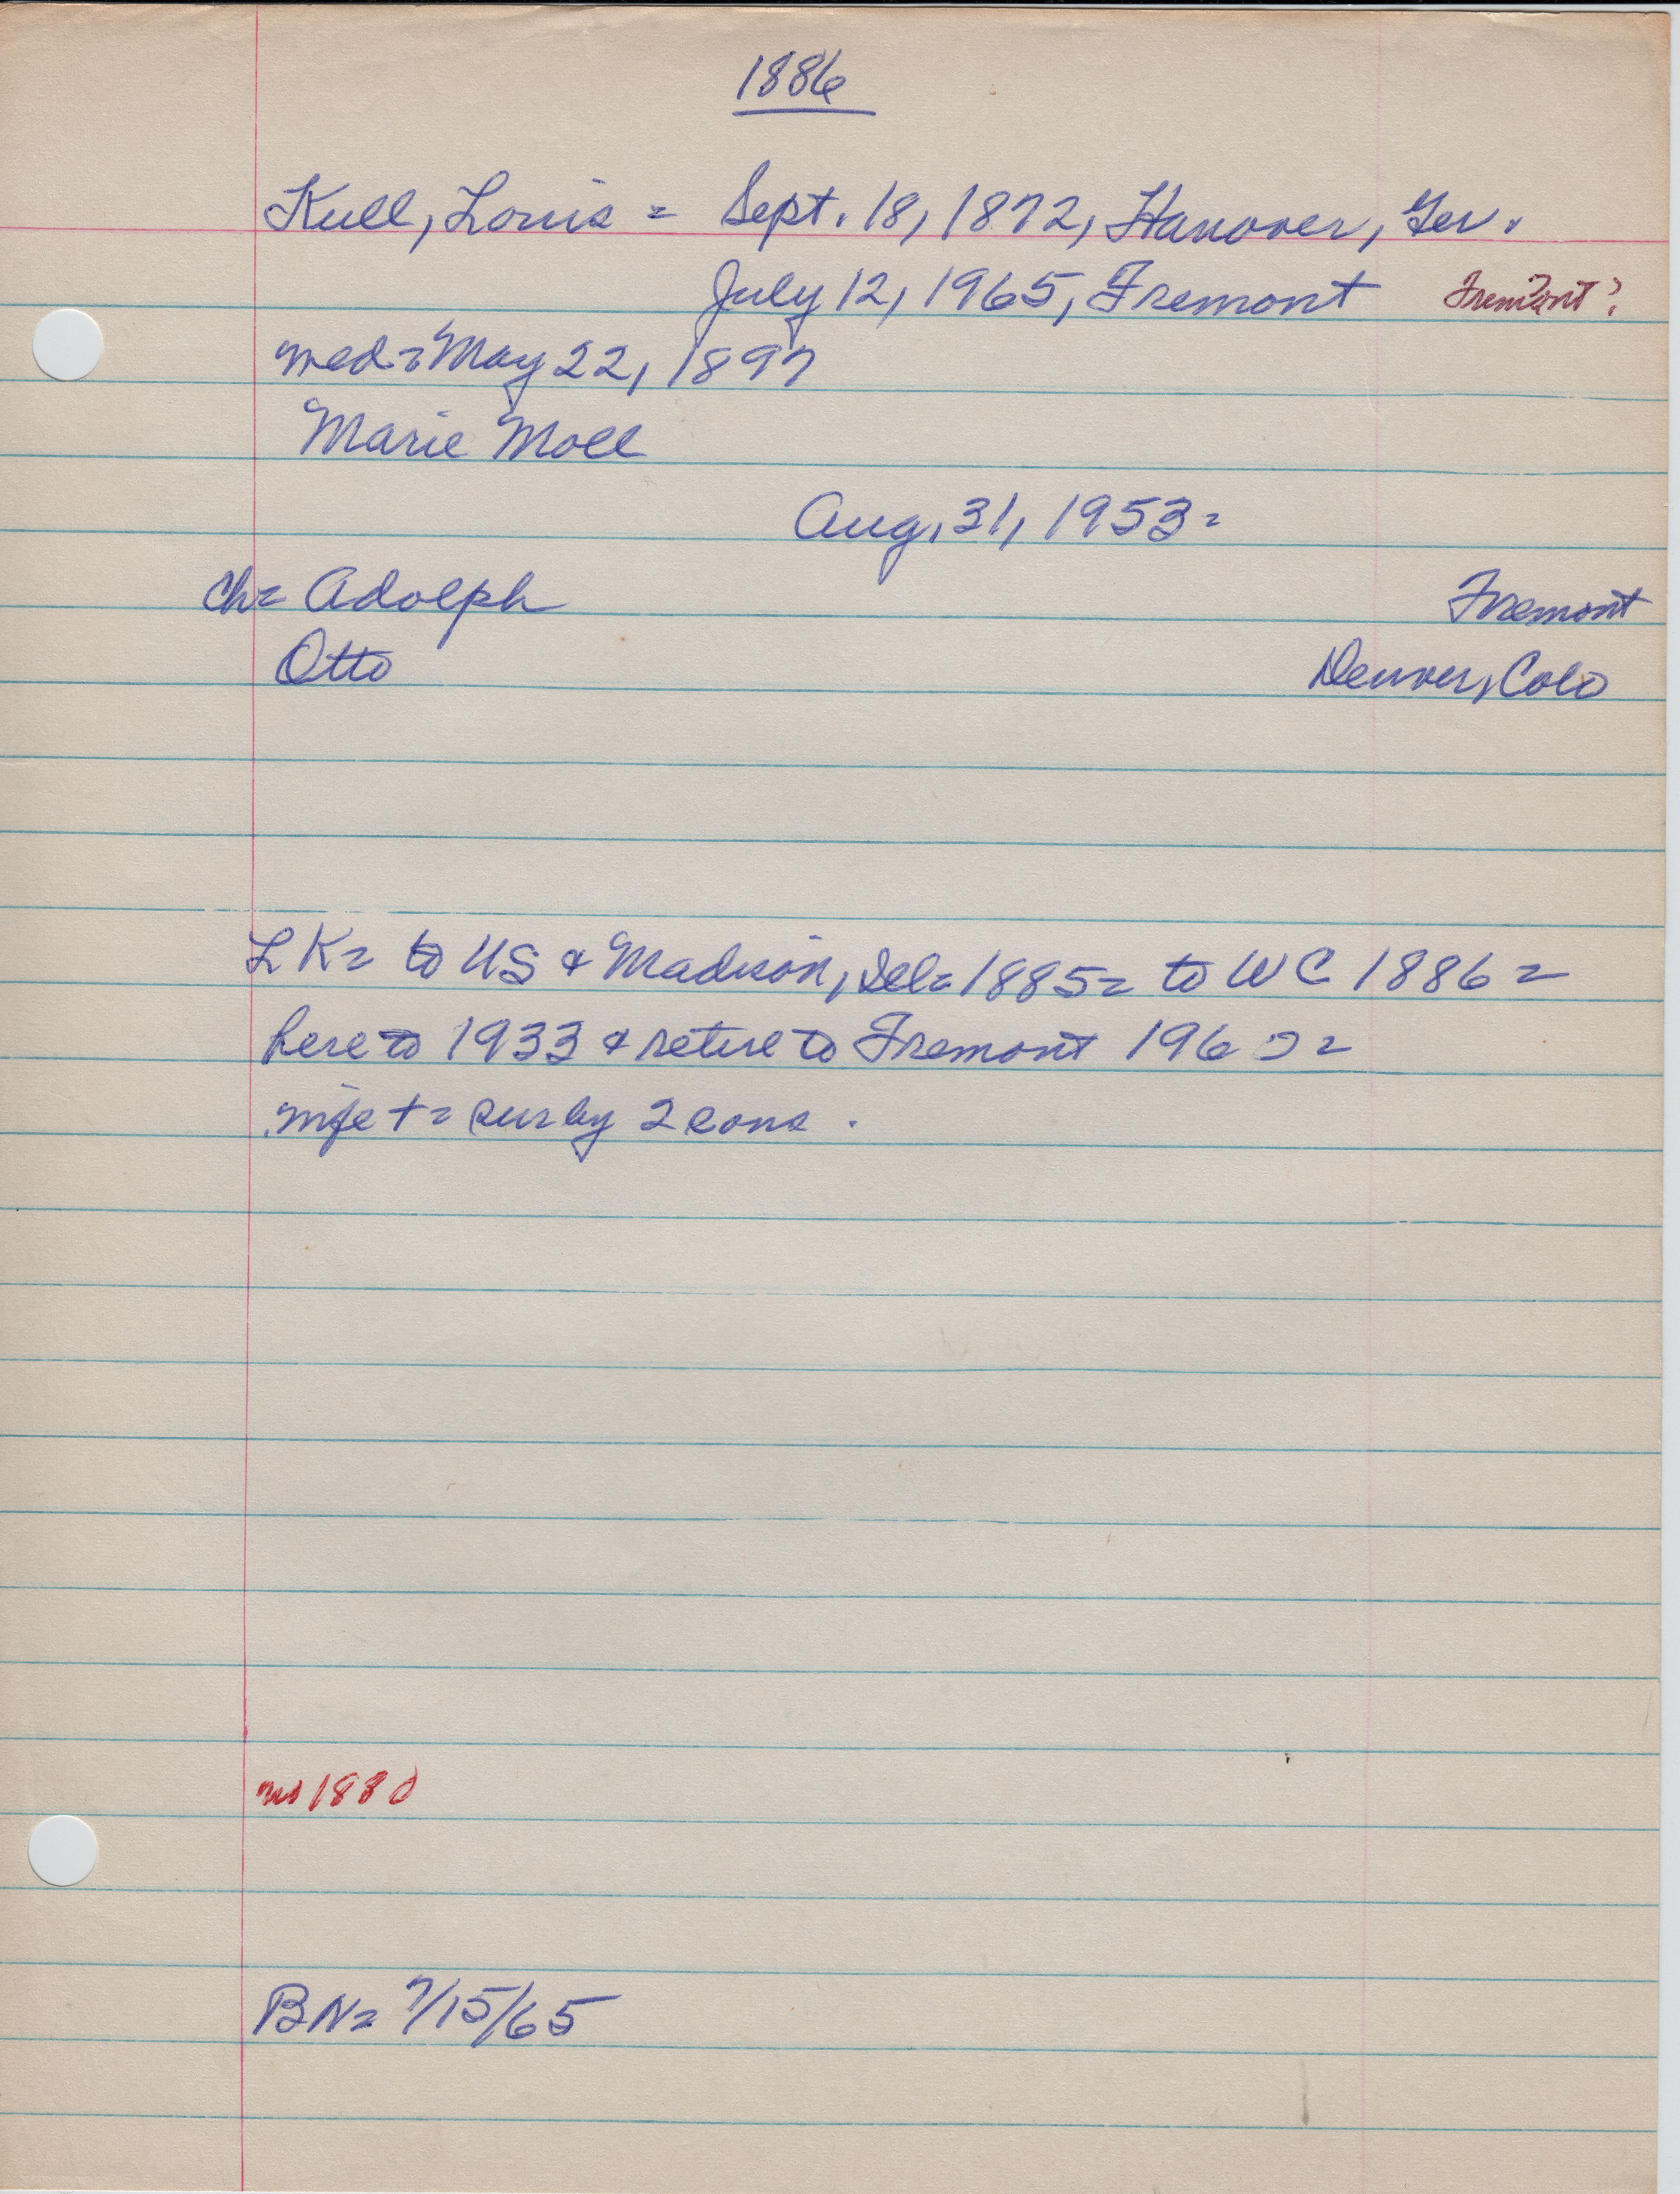 1886
Kull, Louis = Sept. 18, 1872, Hanover, Ger.
July 12, 1965, Fremont Fremont?
wed = May 22, 1897
Marie Moll
Aug. 31, 1953 =
ch = Adolph Fremont
Otto Denver, Colo
LK = to US & Madison, = 1885 = to WC 1886 =
here to 1933 & retire to Fremont 196 =
wife + = sur by 2 sons.
1880
BN = 7/15/65